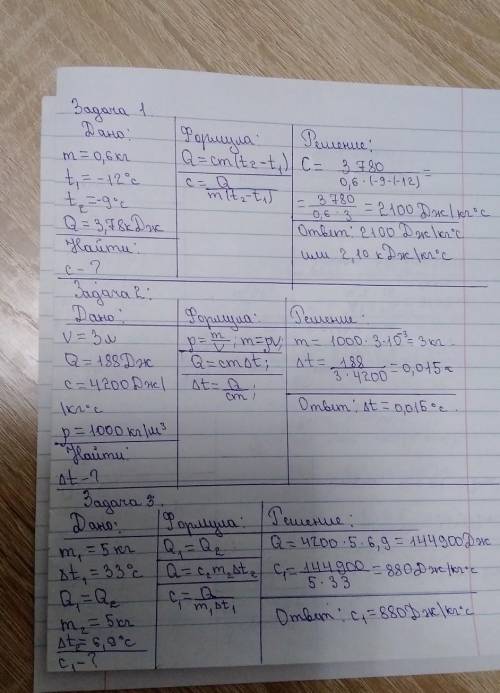 Задача 1
Дано:
m = 0,6 кг
t₁ = -12°c
t₂ = -9°c
Q = 3,78 кДж
Найти:
c - ?
Формула:
Q = cm(t₂ - t₁)
c = Q / m(t₂ - t₁)
Решение:
C = 3780 / 0,6 · (-9 - (-12) =
= 3780 / 0,6 · 3 = 2100 Дж/кг°c
Ответ: 2100 Дж/кг°c
или 2,10 кДж/кг°c
Задача 2:
Дано:
V = 3л
Q = 188 Дж
c = 4200 Дж/
/кг°c
p = 1000 кг/м³
Найти:
Δt - ?
Формула:
p = m / V ; m = pV
Q = cmΔt;
Δt = Q / cm;
Решение:
m = 1000 · 3 · 10⁻³ = 3 кг
Δt = 188 / 3 · 4200 = 0,015
Ответ: Δt = 0,015°c.
Задача 3.
Дано:
m₁ = 5 кг
Δt₁ = 33°c
Q₁ = Q₂
m₂ = 5 кг
Δt₂ = 6,9°c
c₁ - ?
Формула:
Q₁ = Q₂
Q = c₂m₂Δt₂
c₁ = Q / m₁Δt₁
Решение:
Q = 4200 · 5 · 6,9 = 144900 Дж
c₁ = 144900 / 5 · 33 = 880 Дж/кг°c
Ответ: c₁ = 880 Дж/кг°c